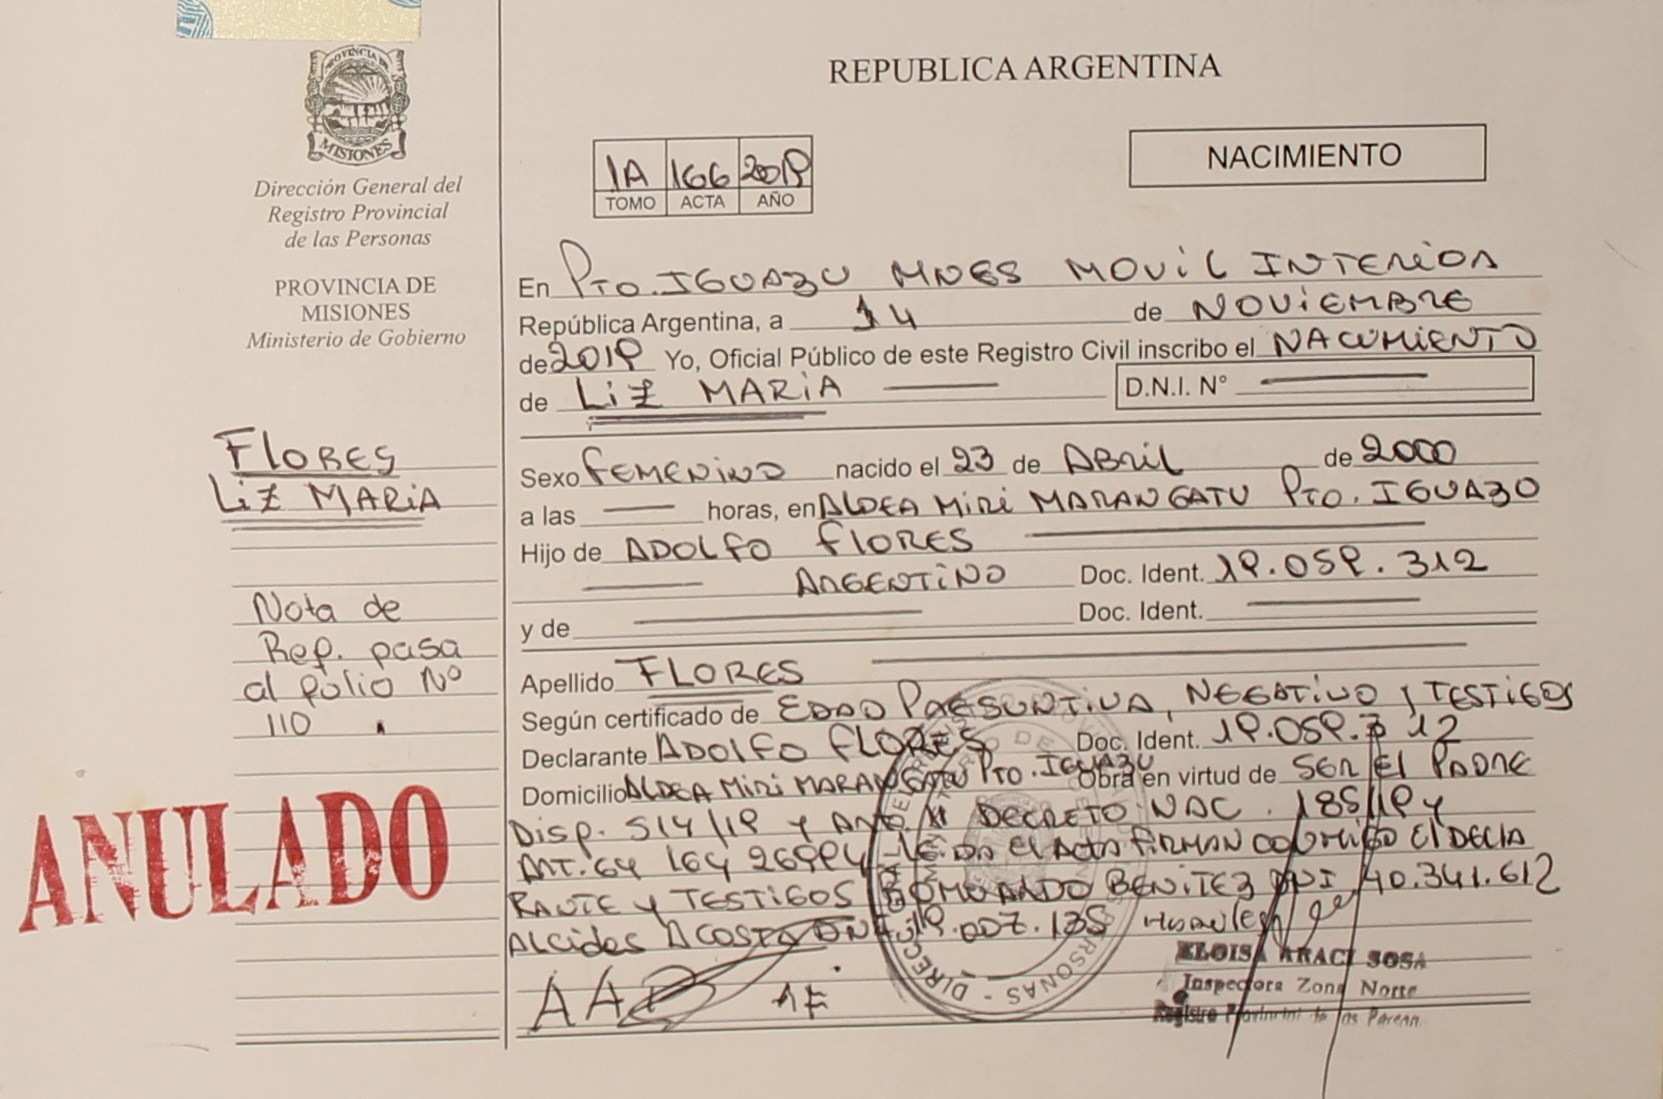 PROVINCIA DE
MISIONES
Dirección General del
Registro Provincial
de las Personas
PROVINCIA DE
MISIONES
Ministerio de Gobierno
FLORES
LIZ MARIA
Nota de
Ref. pasa
al folio Nº
110
ANULADO
REPUBLICA ARGENTINA
1A 166 2019
TOMO ACTA AÑO
NACIMIENTO
En Pto. IGUAZU MNES MOVIL INTERIOR
República Argentina, a 14 de NOVIEMBRE
de 2019 Yo, Oficial Público de este Registro Civil inscribo el NACIMIENTO
de LIZ MARIA D.N.I. N°
Sexo FEMENINO nacido el 23 de ABRIL de 2000
a las horas, en ALDEA MIRI MARANGATU Pto. IGUAZU
Hijo de ADOLFO FLORES
ARGENTINO Doc. Ident. 19.059.312
y de Doc. Ident.
Apellido FLORES
Según certificado de EDAD PRESUNTIVA, NEGATIVO y TESTIGOS
Declarante ADOLFO FLORES Doc. Ident. 19.059.312
Domicilio ALDEA MIRI MARANGATU Pto. IGUAZU Obra en virtud de SER El PADRE
Disp. 514/19 y Art. XI DECRETO NAC. 185/19 y
Art. 64 ley 26994 LEIDA El ACTA FIRMAN CONMIGO El DECLA
RANTE y TESTIGOS ROMUALDO BENITEZ DNI 40.341.612
Alcides ACOSTA DNI 19.007.135
AAD AF
ELOISA ARACI SOSA
Inspectora Zona Norte
Registro Provincial de las Person.